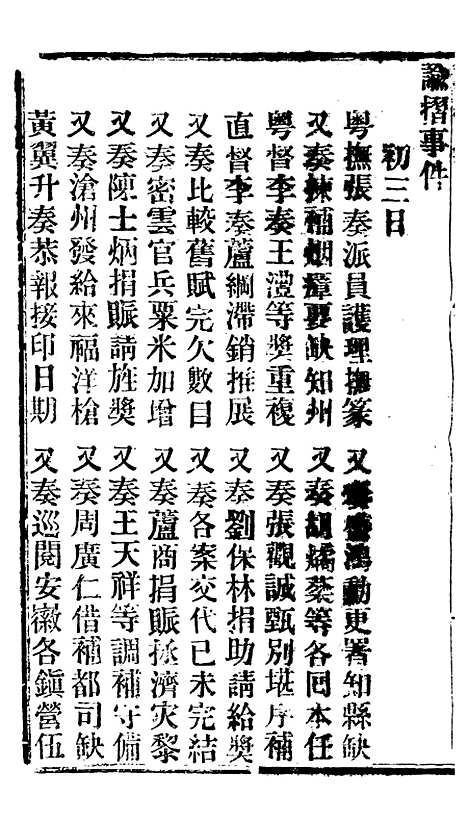 諭摺事件
初三日
粤撫張奏派員護理撫篆 又奏鴻勳更署知縣缺
又奏揀補烟瘴要缺知州 又奏胡燏棻等各囘本任
粤督李奏王澧等獎重複 又奏張觀誠甄別堪序補
直督李奏蘆綱滯銷推展 又奏劉保林捐助請給獎
又奏比較舊賦完欠數目 又奏各案交代已未完結
又奏密雲官兵粟米加增 又奏蘆商捐賑拯濟灾黎
又奏陳士炳捐賑請旌獎 又奏王天祥等調補守備
又奏滄州發給來福洋槍 又奏周廣仁借補都司缺
黃翼升奏恭報接印日期 又奏巡閱安徽各鎭營伍